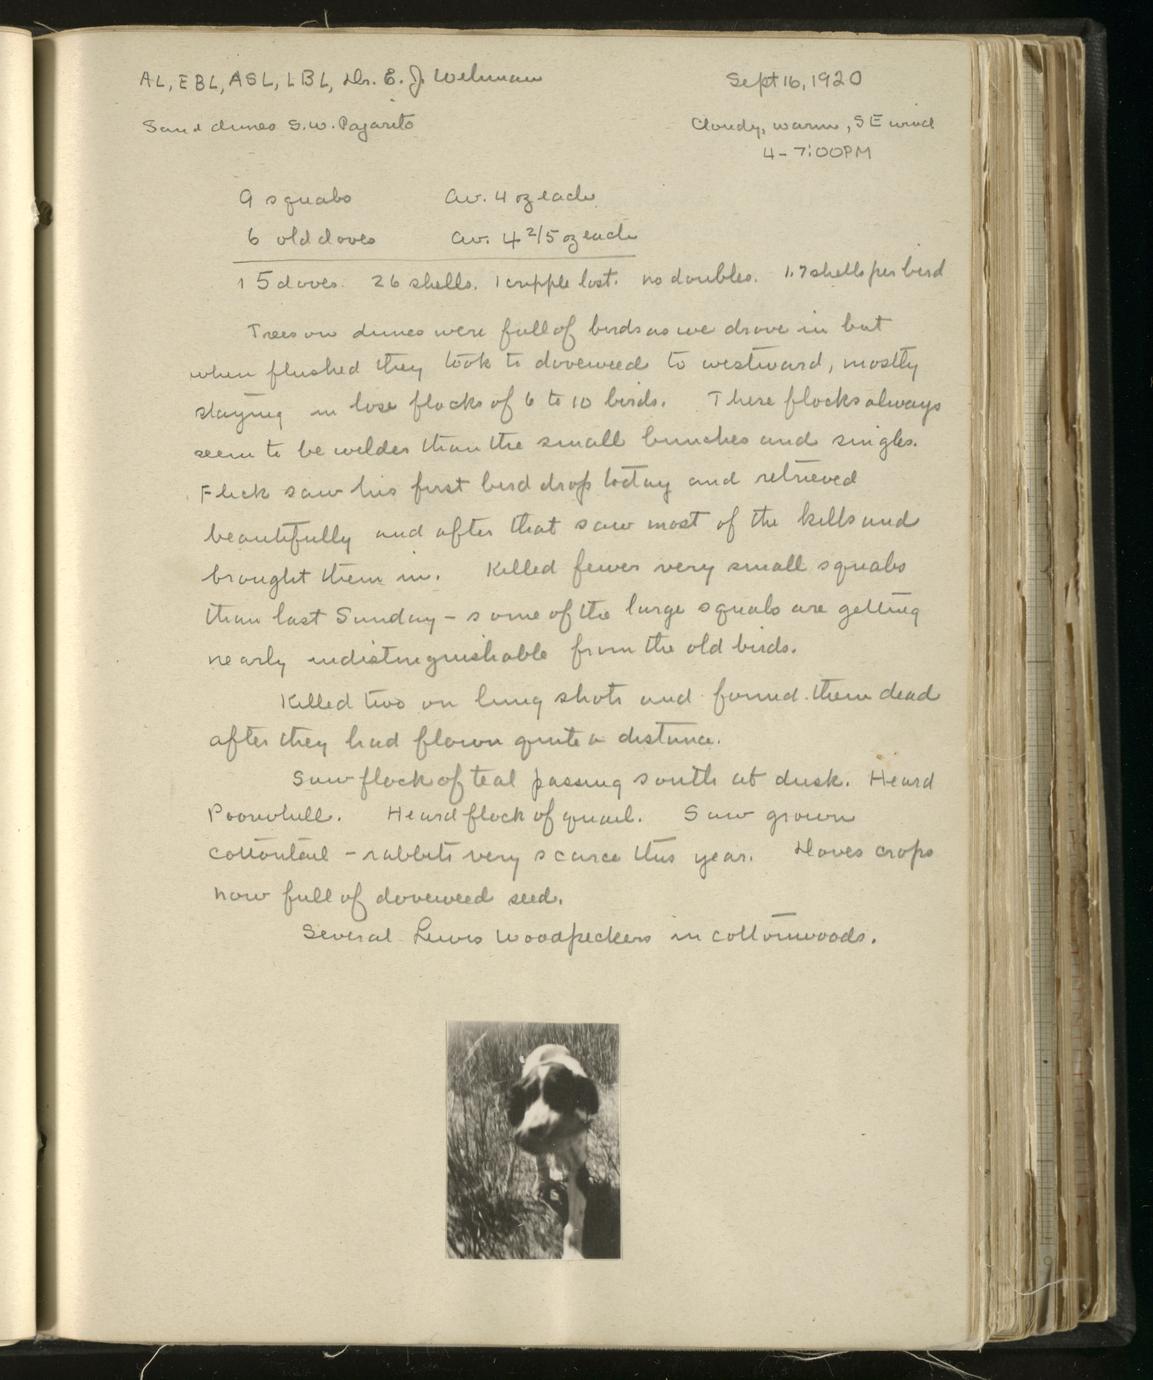 AL, EBL, ASL, LBL, Dr. E. J. Wehman
Sept 16, 1920
Sand dunes S.W. Pajarito
Cloudy, warm, SE wind
4 - 7:00PM
9 squabs Av. 4 oz each
6 old doves Av. 4 2/5 oz each
15 doves. 26 shells. 1 cripple lost. no doubles. 1.7 shells per bird
Trees on dunes were full of birds as we drove in but
when flushed they took to doveweed to westward, mostly
staying in lose flocks of 6 to 10 birds. These flocks always
seem to be wilder than the small bunches and singles.
Flick saw his first bird drop today and retrieved
beautifully and after that saw most of the kills and
brought them in. Killed fewer very small squabs
than last Sunday - some of the large squabs are getting
nearly indistinguishable from the old birds.
Killed two on long shots and found them dead
after they had flown quite a distance.
Saw flock of teal passing south at dusk. Heard
Poorwhill. Heard flock of quail. Saw grown
cottontail - rabbits very scarce this year. Doves crops
now full of doveweed seed.
Several Lewis Woodpeckers in cottonwoods.